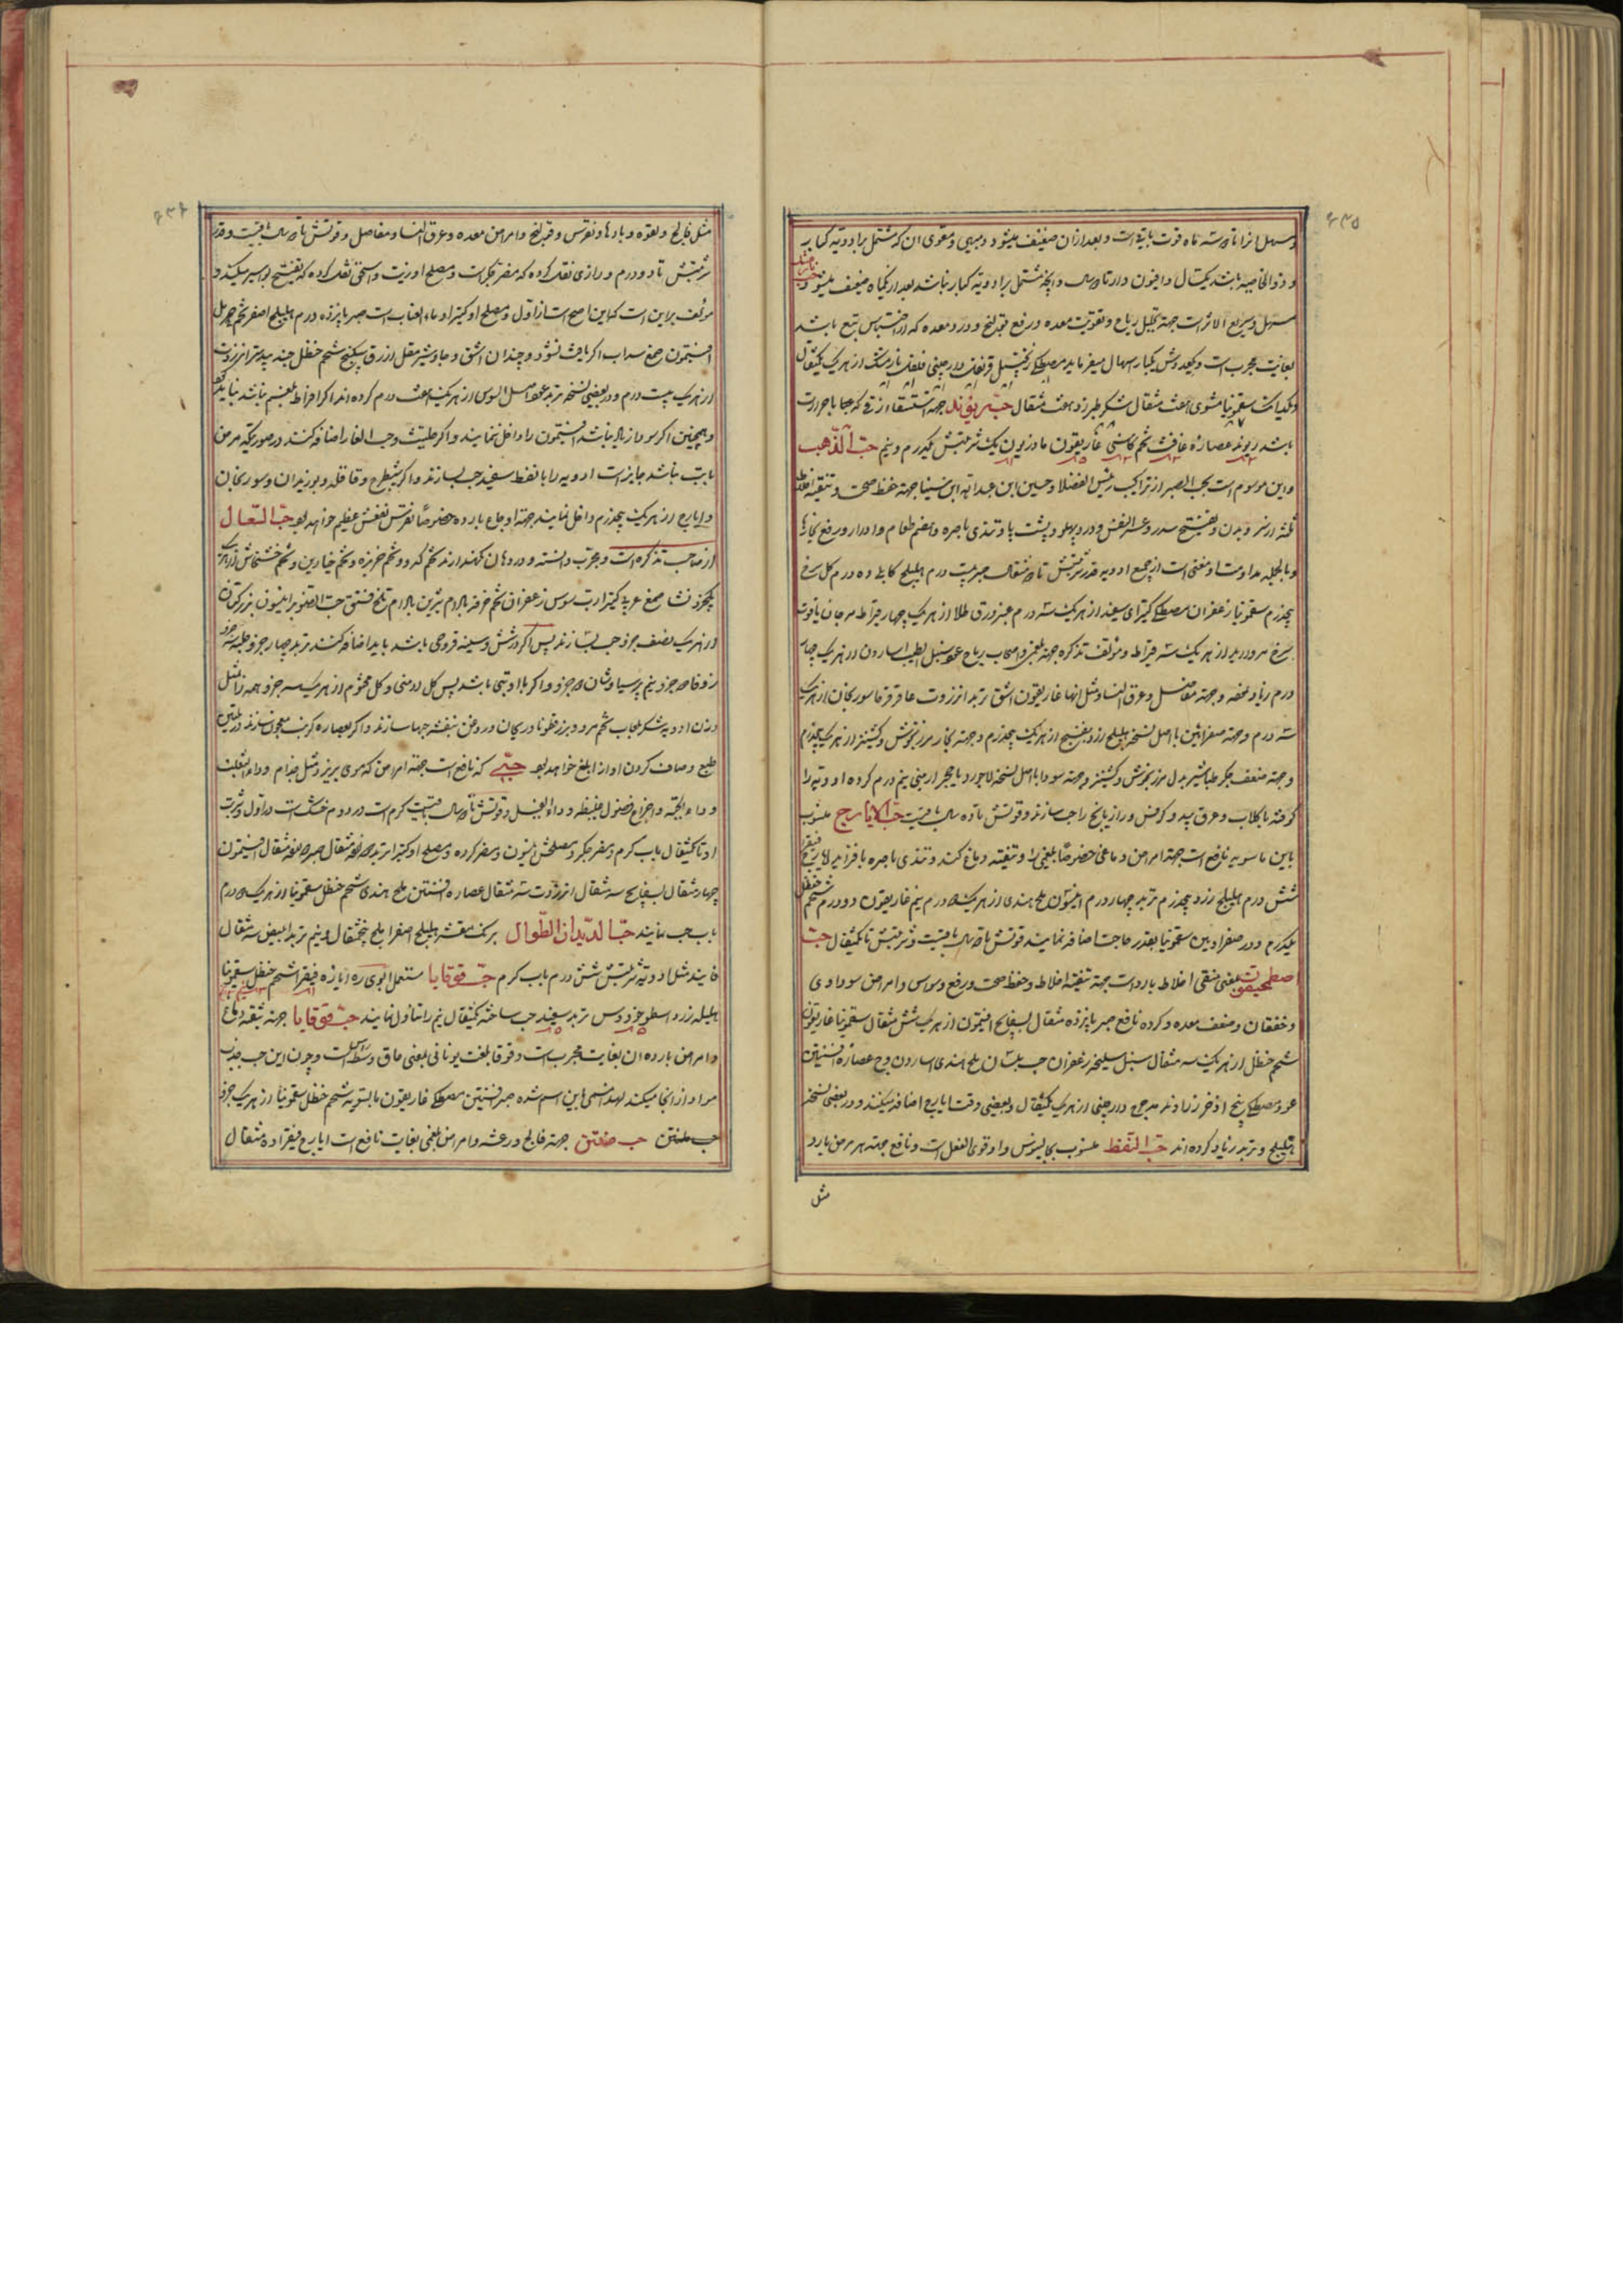 ۶۳۵
مسهل انرا تا سه ماه قوت باقیست و بعد ازان ضعیف میشود و مبهی و مقوی ان که مشتمل برادویه کبار
و ذوالخاصیه باشند یکسال و افیون دار تا دو سال و انچه مشتمل برادویه کبار نباشد بعد از یکماه ضعیف میشود حب
مسهل و سریع الاثر است جهة تحلیل ریاح و تقویت معده و رفع قولنج و درد معده که از احتباس تبع باشد
بغایت مجربست و یکعددش یکبار اسهال میفرماید مصطکی زنجبیل قرنفل دارچینی فلفل از هریک یکمثقال
سقمونیا مشوی هفت مثقال شکر طبرزد هفت مثقال حب ریوند جهة استسقاء زقی که با حرارت
باشد ریوند عصاره غافث تخم کاسنی غاریقون مازریون یک شربتش یکدرم و نیم حب الذهب
و این موسوم است بحب الصبر از تراکیب رئیس الفضلا حسین ابن عبدالله ابن سینا جهة حفظ صحت و تنقیه اخلاط
ثلثه از سر و بدن و تفتیح سدد و عسر النفس و درد پهلو و پشت و پا و تندی باصره و هضم طعام و ادرار و رفع بخارها
و بالجمله مداومت او مغنی است از جمیع ادویه قدر شربتش تا دو مثقال صبر بیست درم هلیله کابلی ده درم کل سرخ
پنجدرم سقمونیا زعفران مصطکی کتیرای سفید از هریک سه درم عنبر ورق طلا از هریک چهار قیراط مرجان یاقوت
سرخ مروارید از هریک سه قیراط و مؤلف تذکره جهة بلغمی و اصحاب ریاح عود سنبل الطیب اسارون از هریک چهار
درم زیاد نموده و جهة مفاصل و عرق النسا و مثل انها غاریقون اشق تربد انزروت عاقرقرحا سورنجان از هریک
سه درم و جهة صفراویین با اصل نسخه هلیله زرد بنفسج از هریک پنجدرم و جهة بخار مرزنجوش و کشنیز از هریک پنجدرم
و جهة ضعف جکر طباشیر بدل مرزنجوش و کشنیز و جهة سودا با اصل نسخه لاجورد یا حجر ارمنی نیم درم کرده ادویه را
کرفته با کلاب و عرق بید و کرفس و رازیانج را حب سازند و قوتش تا ده سال باقیست حب الایارج منسوب
باین ماسویه نافع است جهة امراض دماغی خصوصا بلغمی را و تنقیه دماغ کند و تندی باصره بافزاید ایارج فیقرا
شش درم هلیله زرد پنجدرم تربد چهار درم انیسون ملح هندی از هریک درم نیم غاریقون دو درم شحم حنظل
یکدرم و در صفراویین سقمونیا بقدر حاجت اضافه نمایند قوتش تا دو سال باقیست و شربتش تا یکمثقال حب
اصطمحیقون یعنی منقی اخلاط بارد است جهة تنقیه اخلاط و حفظ صحت و رفع وسواس و امراض سوداوی
و خفقان و ضعف معده و کرده نافع صبر پانزده مثقال بسفایج افتیمون از هریک شش مثقال سقمونیا غاریقون
شحم حنظل از هریک سه مثقال سنبل سلیخه زعفران حب بلسان ملح هندی اسارون وج عصاره افسنتین
عود مصطکی بیخ اذخر زراوند مدحرج دارچینی از هریک یکمثقال و بعضی وقت ایارج اضافه میکنند و در بعضی نسخه
هلیله و تربد زیاد کرده اند حب النفط منسوب بجالینوس و او قوی الفعل است و نافع جهة هر مرض بارد
مثل
۶۳۶
مثل فالج و لقوه و بادها و نقرس و قولنج و امراض معده و عرق النسا و مفاصل و قوتش تا دو سال باقیست و قدر
شربتش تا دو درم و رازی نقل کرده که مضر جکر است و مصلح او زیت و اسحق نقل کرده که تفتیح بواسیر میکند و
مؤلف براین است که این اصح است از اول و مصلح او کتیرا و ماء العناب است صبر پانزده درم هلیله اصفر تخم حرمل
افتیمون صمغ سداب اکر یافت نشود دو چندان اشق و جاوشیر مقل ازرق سکبینج شحم حنظل جند بیدستر انزروت
از هریک بیست درم و در بعضی نسخه تربد عود اصل السوس از هریک هفت درم کرده اند اکر افراط بلغم نباشد نباید کرد
و همچنین اکر سودا زیاد نباشد افتیمون را داخل ننمایند و اکر حلتیت و حب الغار اضافه کنند در صورتیکه مرض
بابت باشد جایز است ادویه را با نفط سفید حب سازند و اکر شیطرج و قاقله و بوزیدان و سورنجان
و ایارج از هریک پنجدرم داخل نمایند جهة اوجاع بارده خصوصا نقرس نفعش عظیم خواهد بود حب السعال
از صاحب تذکره است و مجرب دانسته و در دهان نکهدارند تخم کدو و تخم خربزه و تخم خیارین و تخم خشخاش از هریک
یکجزو نشا صمغ عربی کتیرا رب سوس زعفران تخم خرفه بادام شیرین بادام تلخ فستق حب الصنوبر انیسون بزر کتان
از هریک نصف جزو حب سازند پس اکر در شش و سینه قروحی باشد باید اضافه کنند تربد چهار جزو حلبه سه جزو
زوفا دو جزو نیم پرسیاوشان دو جزو و اکر با او تبی باشد پس کل ارمنی و کل مختوم از هریک سه جزو همه را مثل
وزن ادویه شکر بلعاب تخم مرو و بزرقطونا و ریحان و روغن بنفشه حبها سازند و اکر بعصاره کرنب معجون سازند در تلیین
طبع و صاف کردن اواز ابلغ خواهد بود حبی که نافع است جهة امراض که موی بریزد و مثل جذام و داء الثعلب
و داء الحیة و اخراج فضول غلیظه و داء الفیل و قوتش تا دو سال باقیست کرمست در دوم خشکست در اول و شربت
او تا یکمثقال باب کرم و مضر جکر و مصلحش انیسون و مضر کرده و مصلح او کتیرا تربد ده مثقال صبر ده مثقال افتیمون
چهار مثقال بسفایج سه مثقال انزروت سه مثقال عصاره افسنتین ملح هندی شحم حنظل سقمونیا از هریک دو درم
باب حب نمایند حب الدیدان الطوال برنک مقشر هلیله اصفر املج پنجمثقال و نیم تربد ابیض سه مثقال
فانیذ مثل ادویه شربتش شش درم باب کرم حب قوقایا مستعمل ابوی ره ایارج فیقرا شحم حنظل سقمونیا
هلیله زرد اسطوخودوس تربد سفید حب ساخته یکمثقال نیم را تناول نمایند حب قوقایا جهة تنقیه دماغ
و امراض بارده ان بغایت مجربست و قوقا بلغت یونانی بمعنی ماق و وسط است و چون این حب جذب
مواد از انجا میکند لهذا مسمی باین اسم شده صبر افسنتین مصطکی غاریقون بالسویه شحم حنظل سقمونیا از هریک جزو
حب منتن جهة فالج و رعشه و امراض بلغمی بغایت نافع است ایارج فیقرا ده مثقال